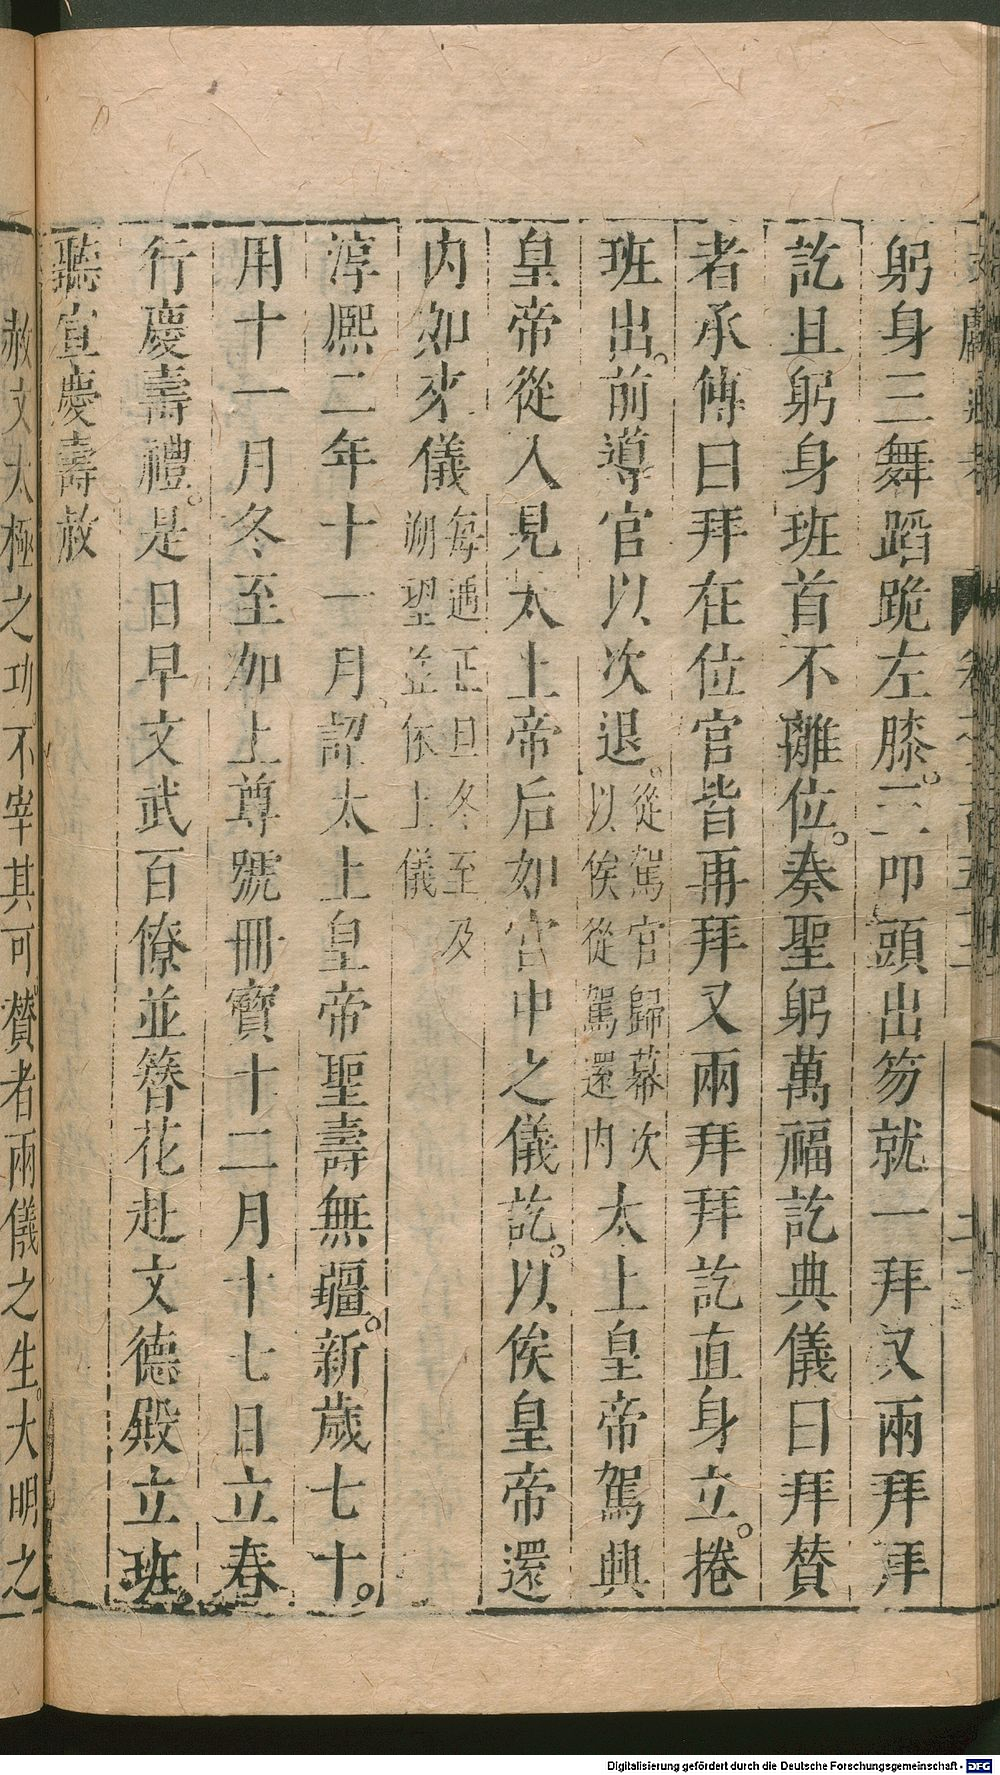 躬身三舞蹈跪左膝。三叩頭出笏就一拜又兩拜拜
訖且躬身班首不離位。奏聖躬萬福訖典儀曰拜贊
者承傳曰拜在位官皆再拜又兩拜拜訖直身立。捲
班出。前導官以次退。從駕官歸幕次以俟從駕還内太上皇帝駕興
皇帝從入見太上帝后如宮中之儀訖。以俟皇帝還
内如來儀每遇正旦冬至及朔望並依上儀
淳熈二年十一月。詔太上皇帝聖壽無疆。新歲七十。
用十一月冬至加上尊號冊寳十二月十七日立春
行慶壽禮。是日早文武百僚並簪花赴文德殿立班
聽宣慶壽赦
赦文太極之功。不宰其可。贊者兩儀之生。大明之
Digitalisierung gefördert durch die Deutsche Forschungsgemeinschaft - DFG